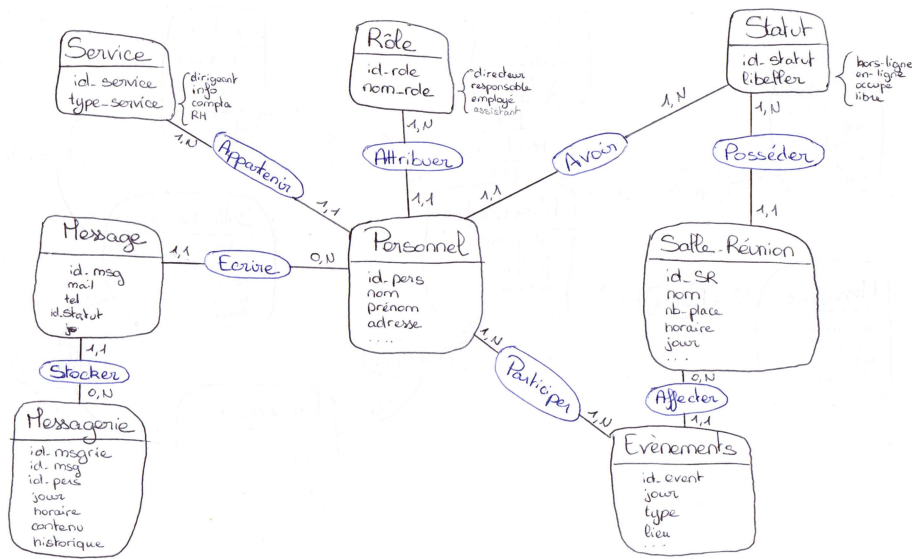 Service
id_service
type_service
dirigeant
info
compta
RH
Rôle
id_role
nom_role
directeur
responsable
employé
assistant
Statut
id_statut
libeller
hors-ligne
en-ligne
occupe
libre
1,N
Appartenir
1,1
1,N
Attribuer
1,1
1,N
Avoir
1,1
1,N
Posséder
1,1
Message
id_msg
mail
tel
id_statut
1,1
Ecrire
0,N
Personnel
id_pers
nom
prénom
adresse
....
Salle_Réunion
id_SR
nom
nb_place
horaire
jour
....
1,1
Stocker
0,N
1,N
Participer
1,N
0,N
Affecter
1,1
Messagerie
id_msgrie
id_msg
id_pers
jour
horaire
contenu
historique
Evènements
id_event
jour
type
lieu
....